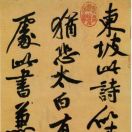 東坡此詩似
猶恐太白有
處此書兼